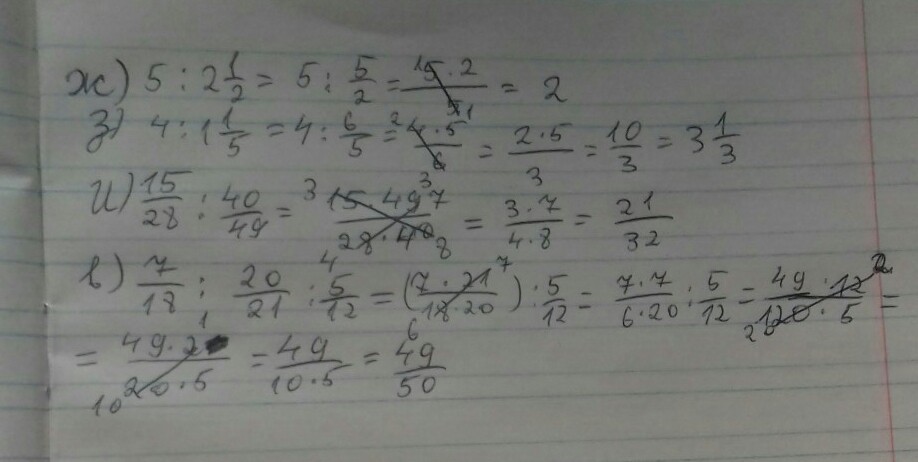 ж) 5 : 2 1/2 = 5 : 5/2 = 5·2/5 = 2
з) 4 : 1 1/5 = 4 : 6/5 = 4·5/6 = 2·5/3 = 10/3 = 3 1/3
и) 15/28 : 40/49 = 15·49/28·40 = 3·7/4·8 = 21/32
в) 7/18 : 20/21 : 5/12 = (7·21/18·20) : 5/12 = 7·7/6·20 : 5/12 = 49·12/120·5 =
= 49·2/20·5 = 49/10·5 = 49/50